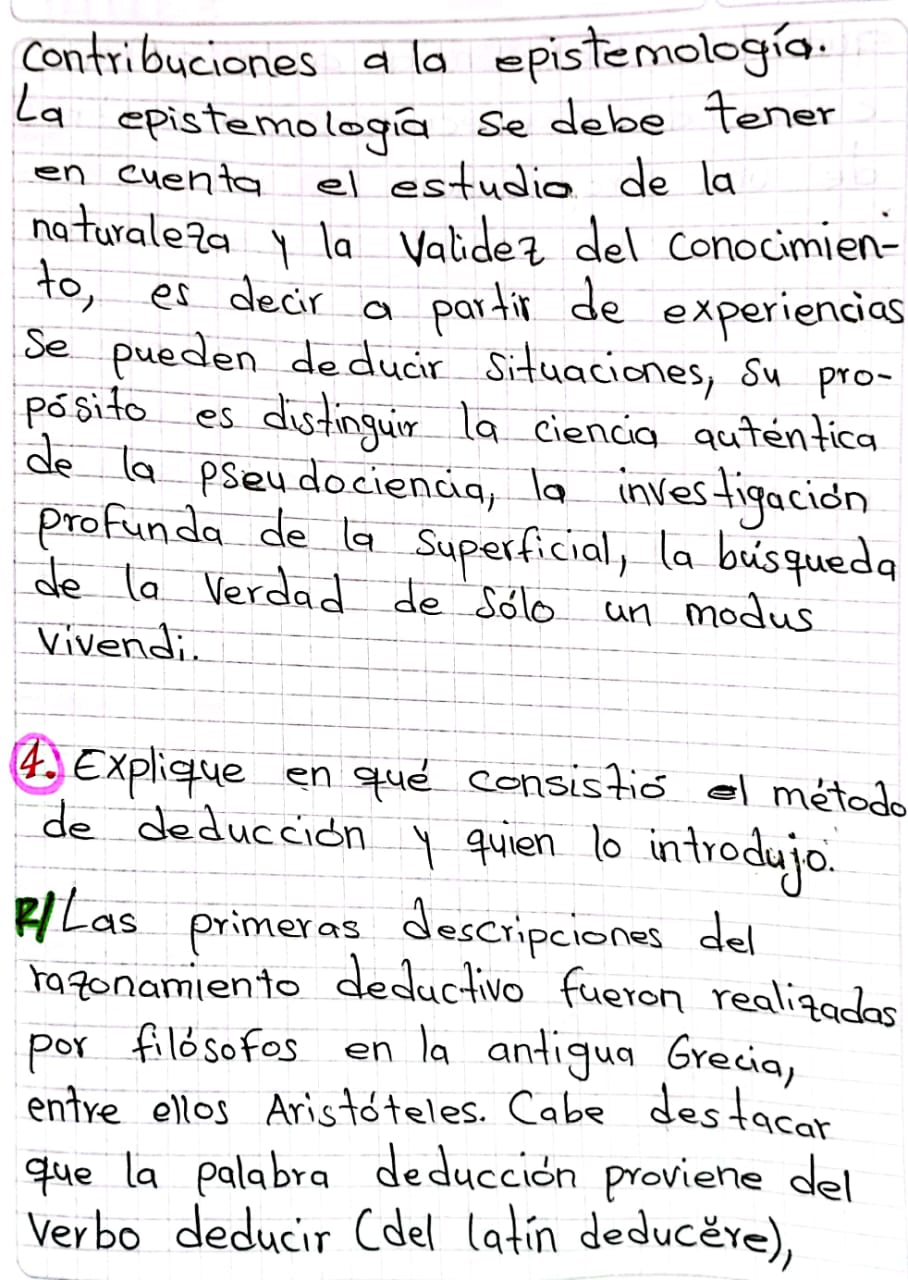 contribuciones a la epistemología.
La epistemología se debe tener
en cuenta el estudio de la
naturaleza y la validez del conocimien-
to, es decir a partir de experiencias
se pueden deducir situaciones, su pro-
pósito es distinguir la ciencia auténtica
de la pseudociencia, la investigación
profunda de la superficial, la búsqueda
de la verdad de sólo un modus
vivendi.
4. Explique en qué consistió el método
de deducción y quien lo introdujo.
R/ Las primeras descripciones del
razonamiento deductivo fueron realizadas
por filósofos en la antigua Grecia,
entre ellos Aristóteles. Cabe destacar
que la palabra deducción proviene del
verbo deducir (del latín deducĕre),